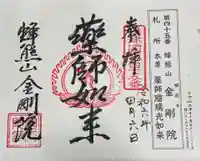 第四十五番 蜂熊山
札所 金剛院
本尊 薬師瑠璃光如来
奉拝
四月六日
薬師如来
蜂熊山 金剛院